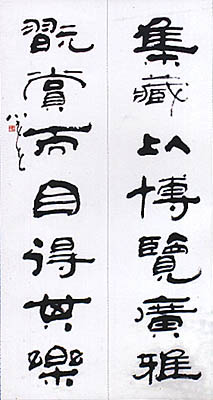 集藏以博覽廣雅
翫賞而自得其樂